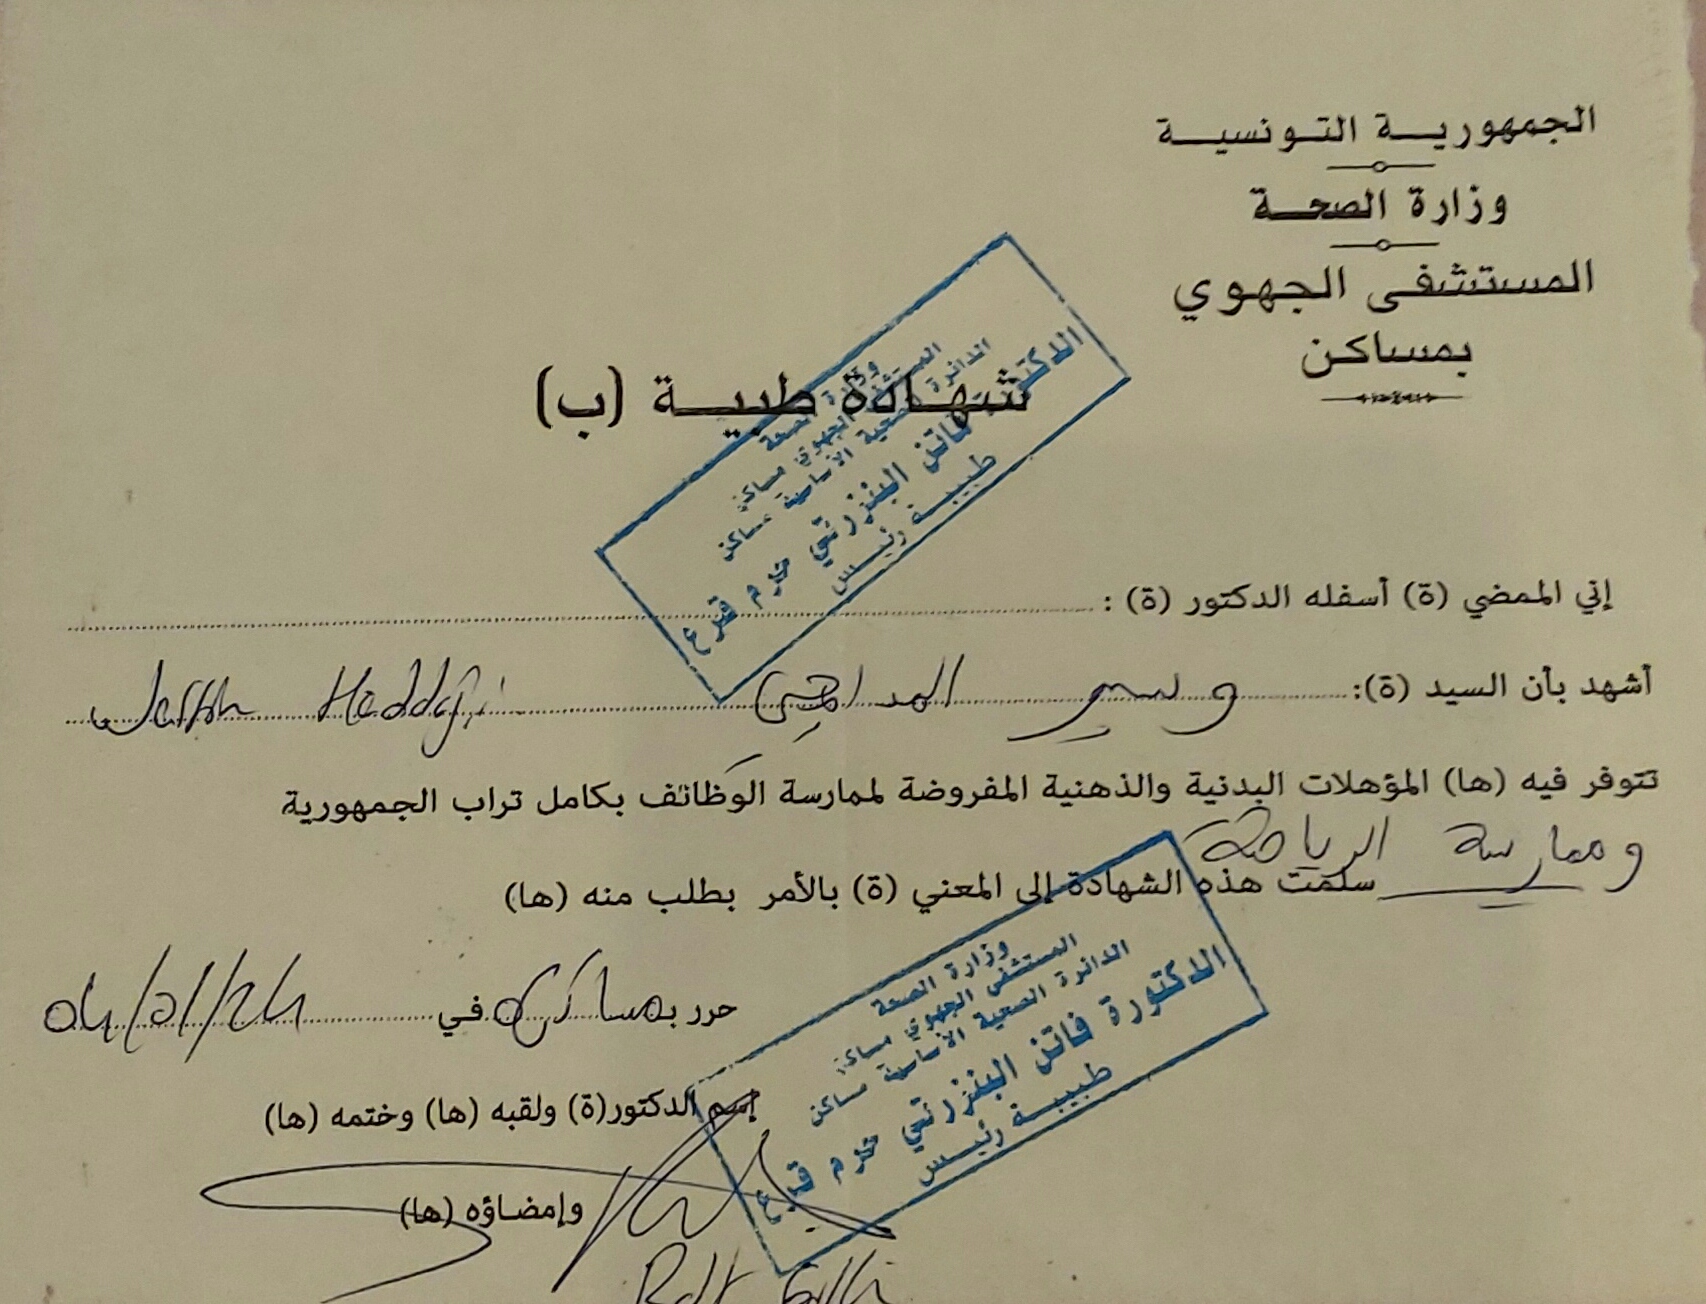 الجمهورية التونسية
وزارة الصحة
المستشفى الجهوي
بمساكن
شهادة طبية (ب)
وزارة الصحة
المستشفى الجهوي مساكن
الدائرة الصحية الأساسية مساكن
الدكتورة فاتن البنزرتي حرم قزع
طبيبة رئيس
إني الممضي (ة) أسفله الدكتور (ة) :
أشهد بأن السيد (ة): وسيم
تتوفر فيه (ها) المؤهلات البدنية والذهنية المفروضة لممارسة الوظائف بكامل تراب الجمهورية
وممارسة الرياضة
سلمت هذه الشهادة إلى المعني (ة) بالأمر بطلب منه (ها)
حرر بمساكن في 04/01/24
وزارة الصحة
المستشفى الجهوي مساكن
الدائرة الصحية الأساسية مساكن
الدكتورة فاتن البنزرتي حرم قزع
طبيبة رئيس
إسم الدكتور(ة) ولقبه (ها) وختمه (ها)
وإمضاؤه (ها)